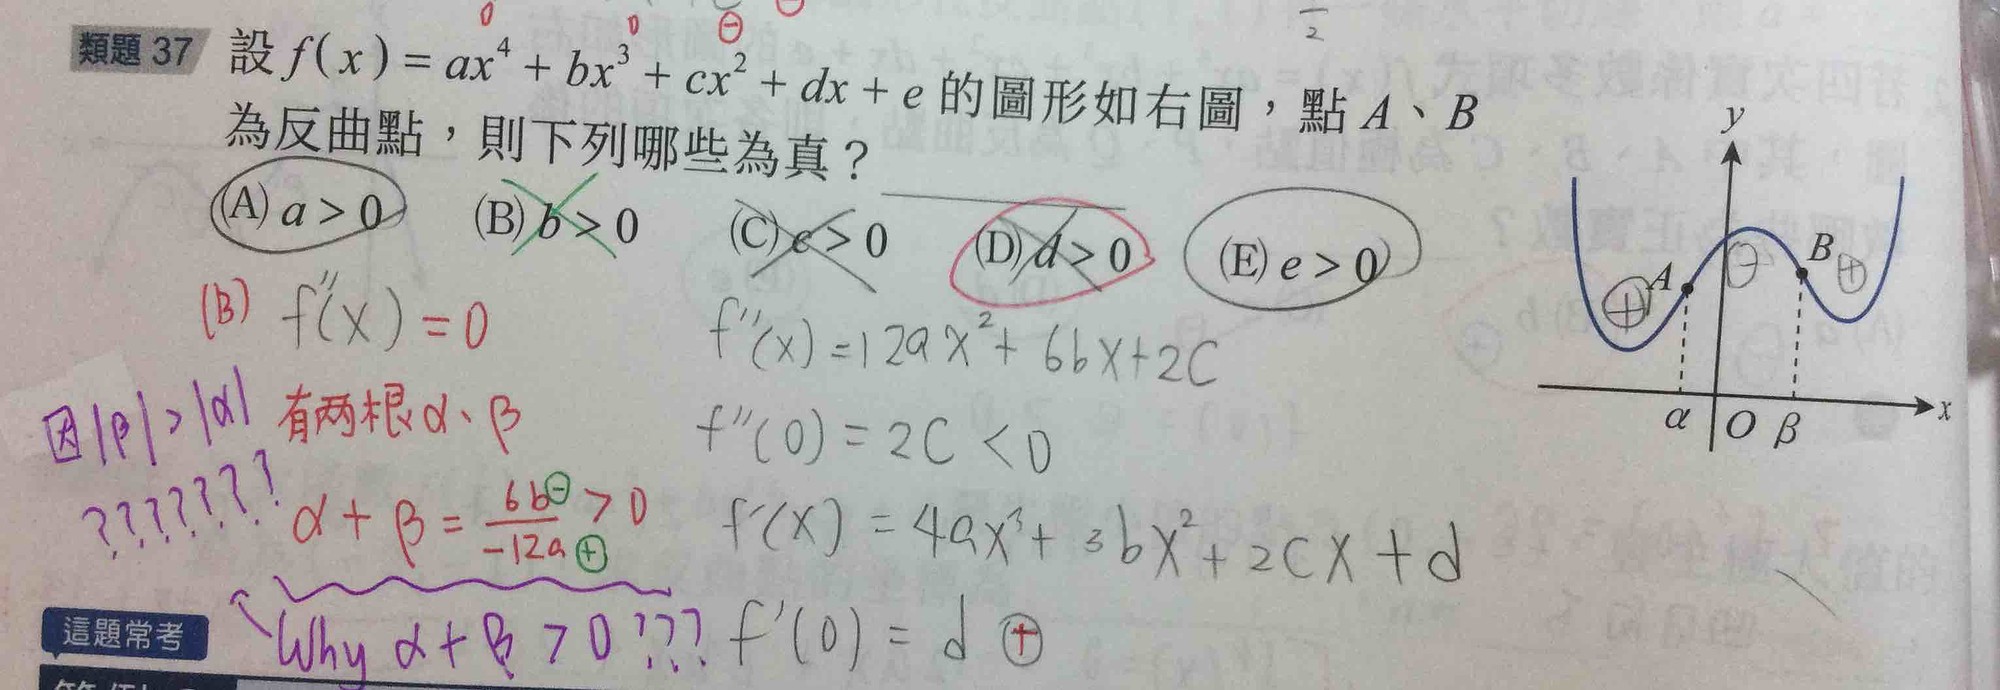 類題 37 設 f(x) = ax⁴ + bx³ + cx² + dx + e 的圖形如右圖，點 A、B
為反曲點，則下列哪些為真？
(A) a > 0 (B) b > 0 (C) c > 0 (D) d > 0 (E) e > 0
(B) f''(x) = 0
有两根 α、β
α + β = 6b⊖ / -12a⊕ > 0
因|β| > |α|
???????
Why α + β > 0 ???
f''(x) = 12ax² + 6bx + 2C
f''(0) = 2C < 0
f'(x) = 4ax³ + 3bx² + 2cx + d
f'(0) = d ⊕
y
A
B
⊕ ⊖ ⊕
α O β x
這題常考
0 0 ⊖
2